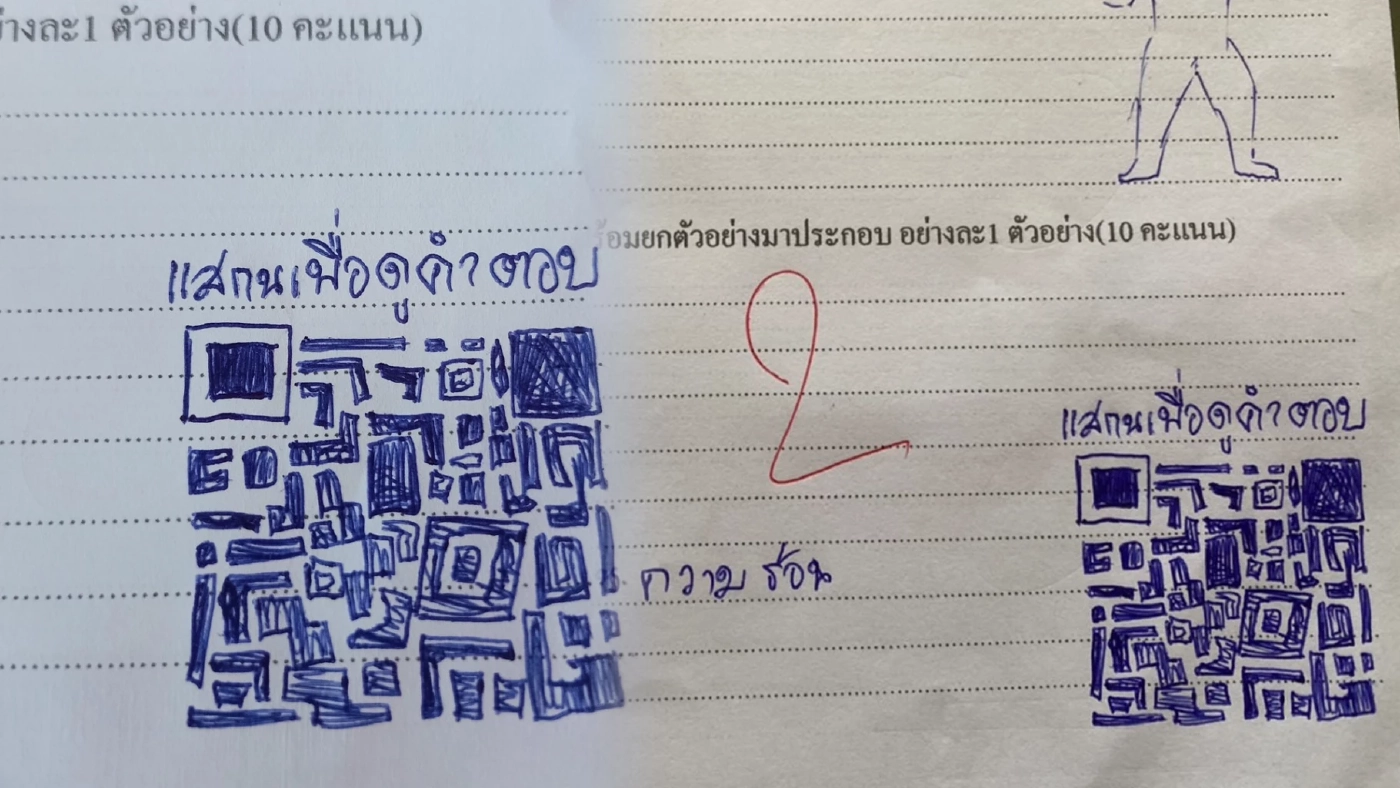 างละ1 ตัวอย่าง(10 คะแนน)
แสกนเพื่อดูคำตอบ
้อมยกตัวอย่างมาประกอบ อย่างละ1 ตัวอย่าง(10 คะแนน)
2
แสกนเพื่อดูคำตอบ
ความร้อน